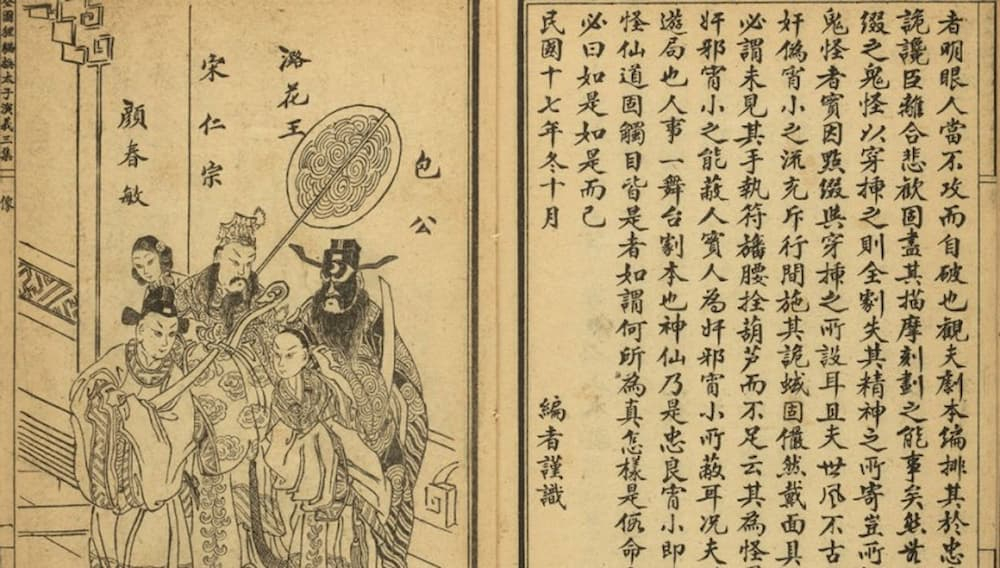 者明眼人當不攻而自破也觀夫劇本編排其於忠
詭讒臣離合悲歡固盡其描摩刻劃之能事矣然
綴之鬼怪以穿揷之則全劇失其精神之所寄豈所
鬼怪者實因點綴與穿揷之所設耳且夫世風不古
奸僞宵小之流充斥行間施其詭蜮固儼然戴面具
必謂未見其手執符旛腰拴葫芦而不足云其為怪
奸邪宵小之能蔽人實人為奸邪宵小所蔽耳況夫
遊局也人事一舞台劇本也神仙乃是忠良宵小即
怪仙道固觸目皆是者如謂何所為真怎樣是假命
必曰如是如是而已
民國十七年冬十月
編者謹識
包公
潞花王
宋仁宗
顔春敏
全圖狸貓換太子演義三集
像